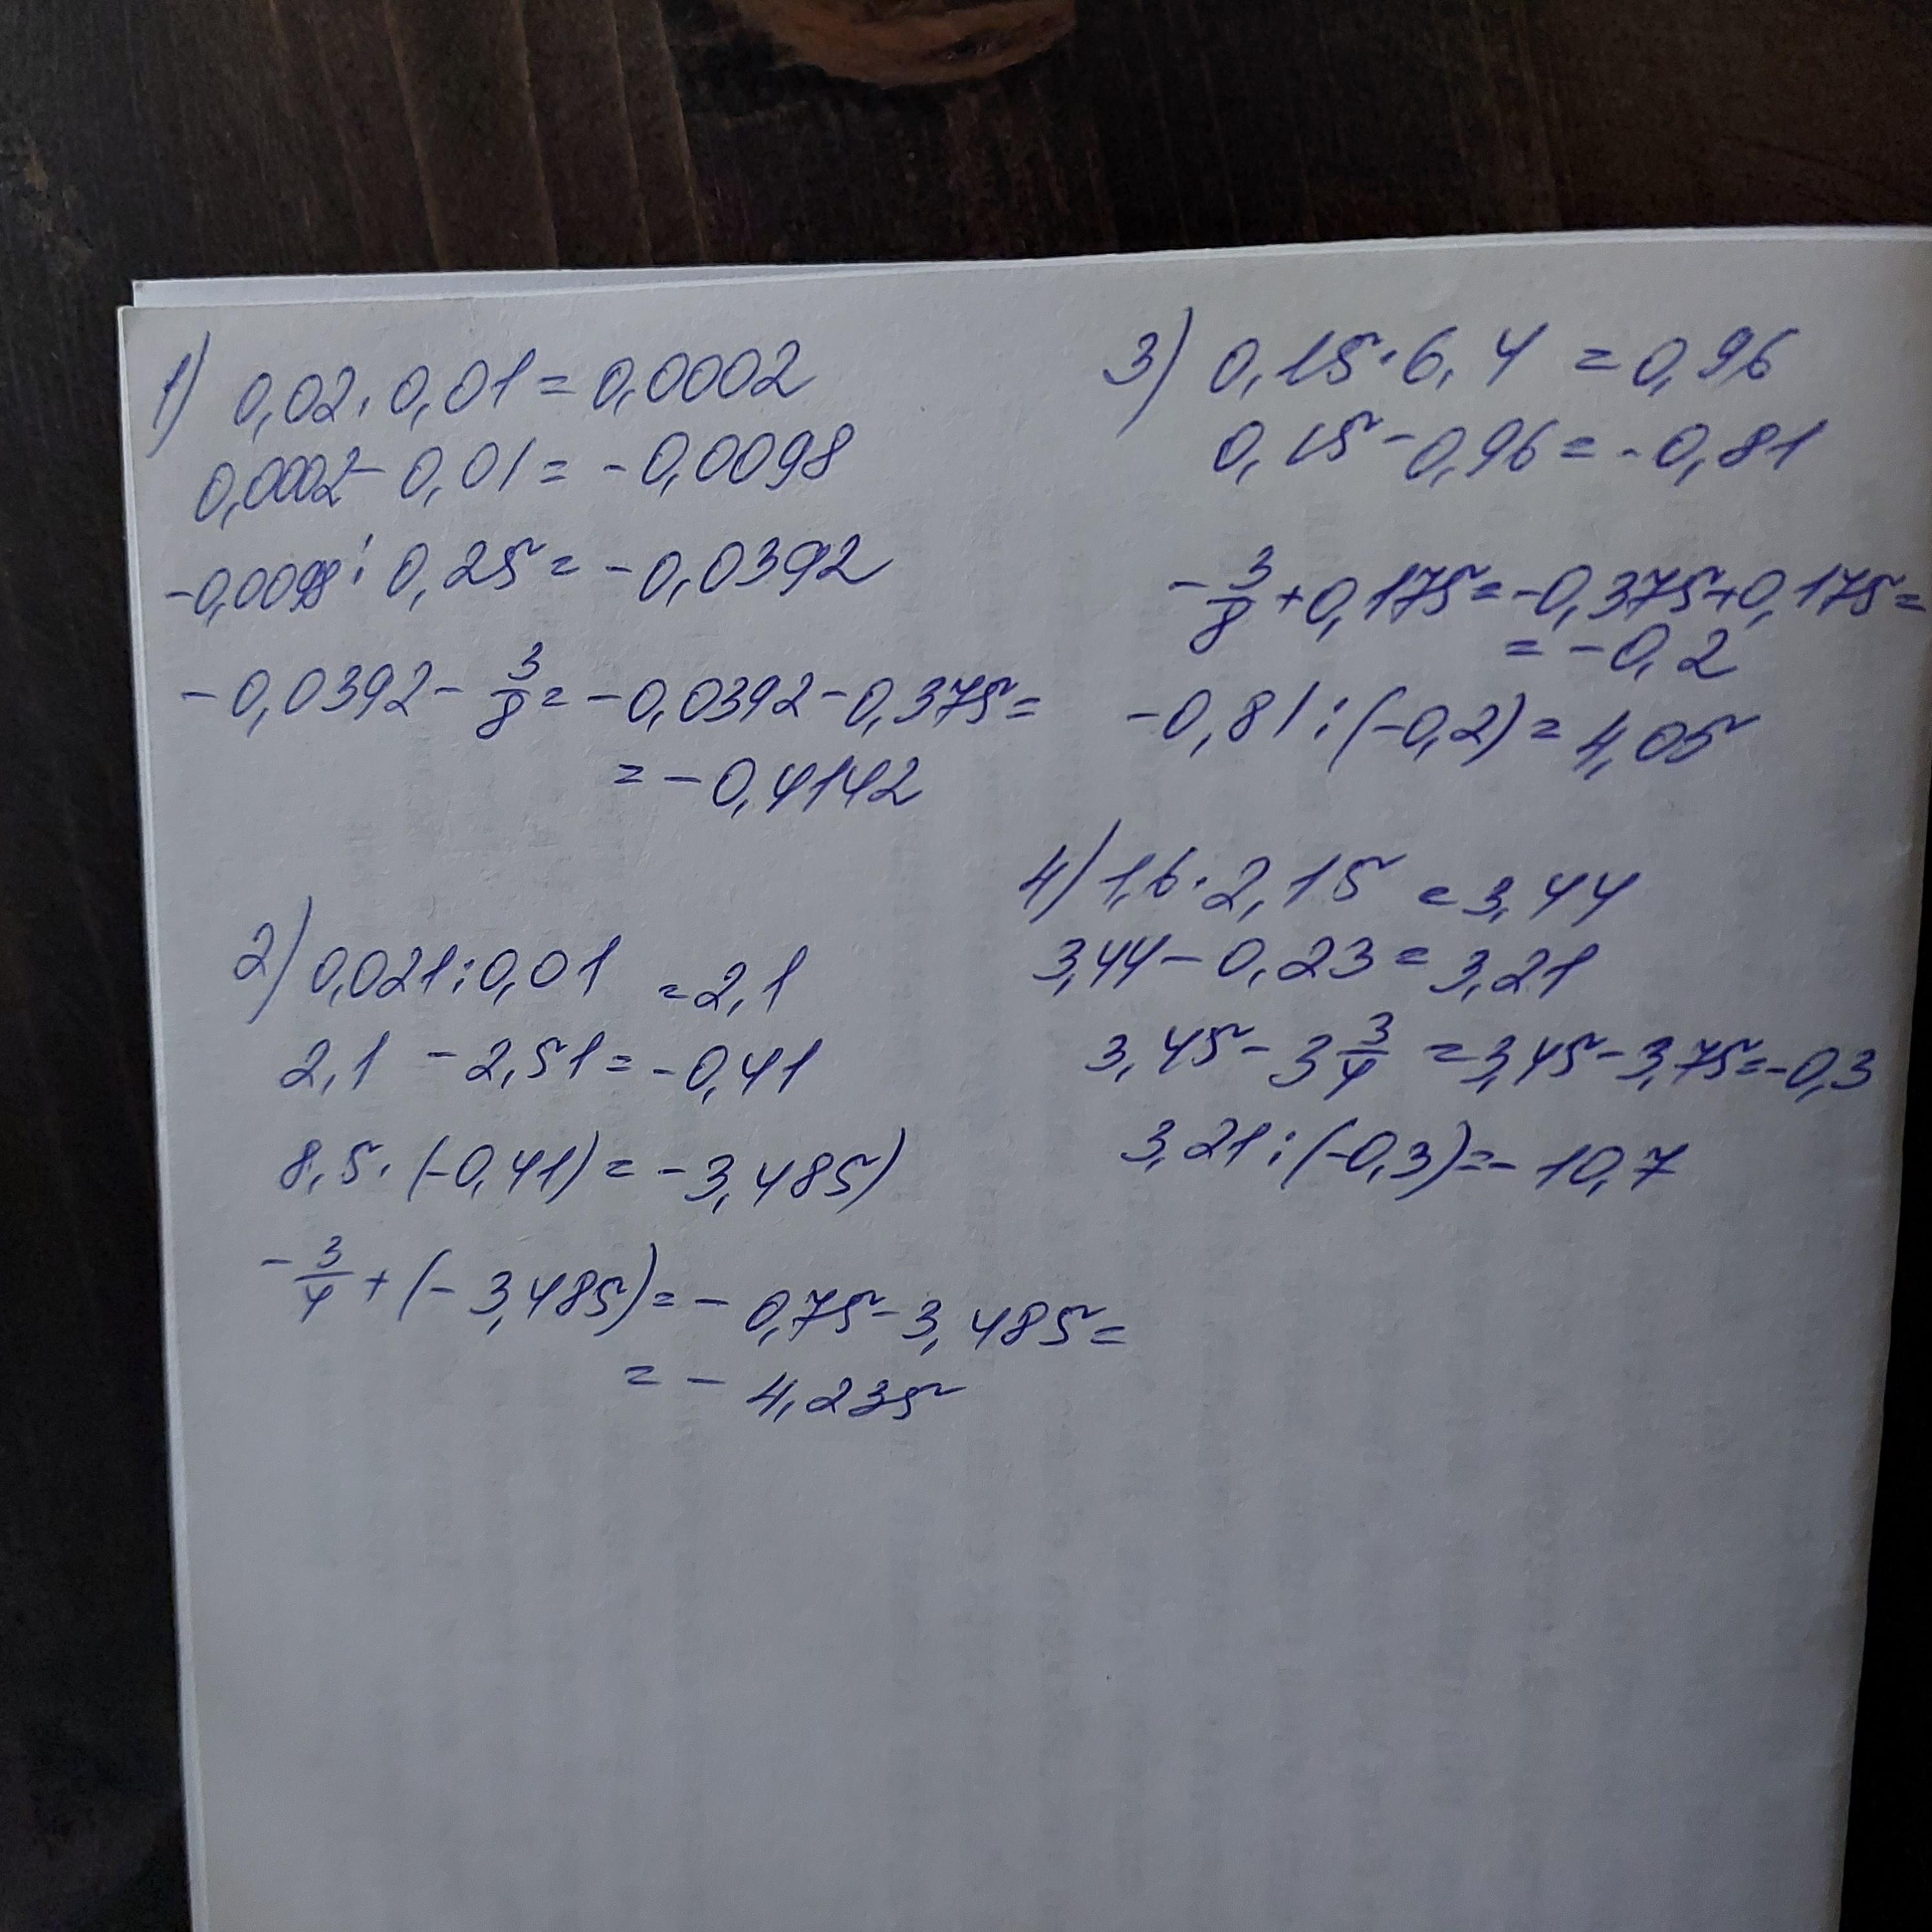 1) 0,02 · 0,01 = 0,0002
0,0002 - 0,01 = -0,0098
-0,0098 : 0,25 = -0,0392
-0,0392 - 3/8 = -0,0392 - 0,375 =
= -0,4142
2) 0,021 : 0,01 = 2,1
2,1 - 2,51 = -0,41
8,5 · (-0,41) = -3,485)
-3/4 + (-3,485) = -0,75 - 3,485 =
= -4,235
3) 0,15 · 6,4 = 0,96
0,15 - 0,96 = -0,81
-3/8 + 0,175 = -0,375 + 0,175 =
= -0,2
-0,81 : (-0,2) = 4,05
4) 1,6 · 2,15 = 3,44
3,44 - 0,23 = 3,21
3,45 - 3 3/4 = 3,45 - 3,75 = -0,3
3,21 : (-0,3) = -10,7